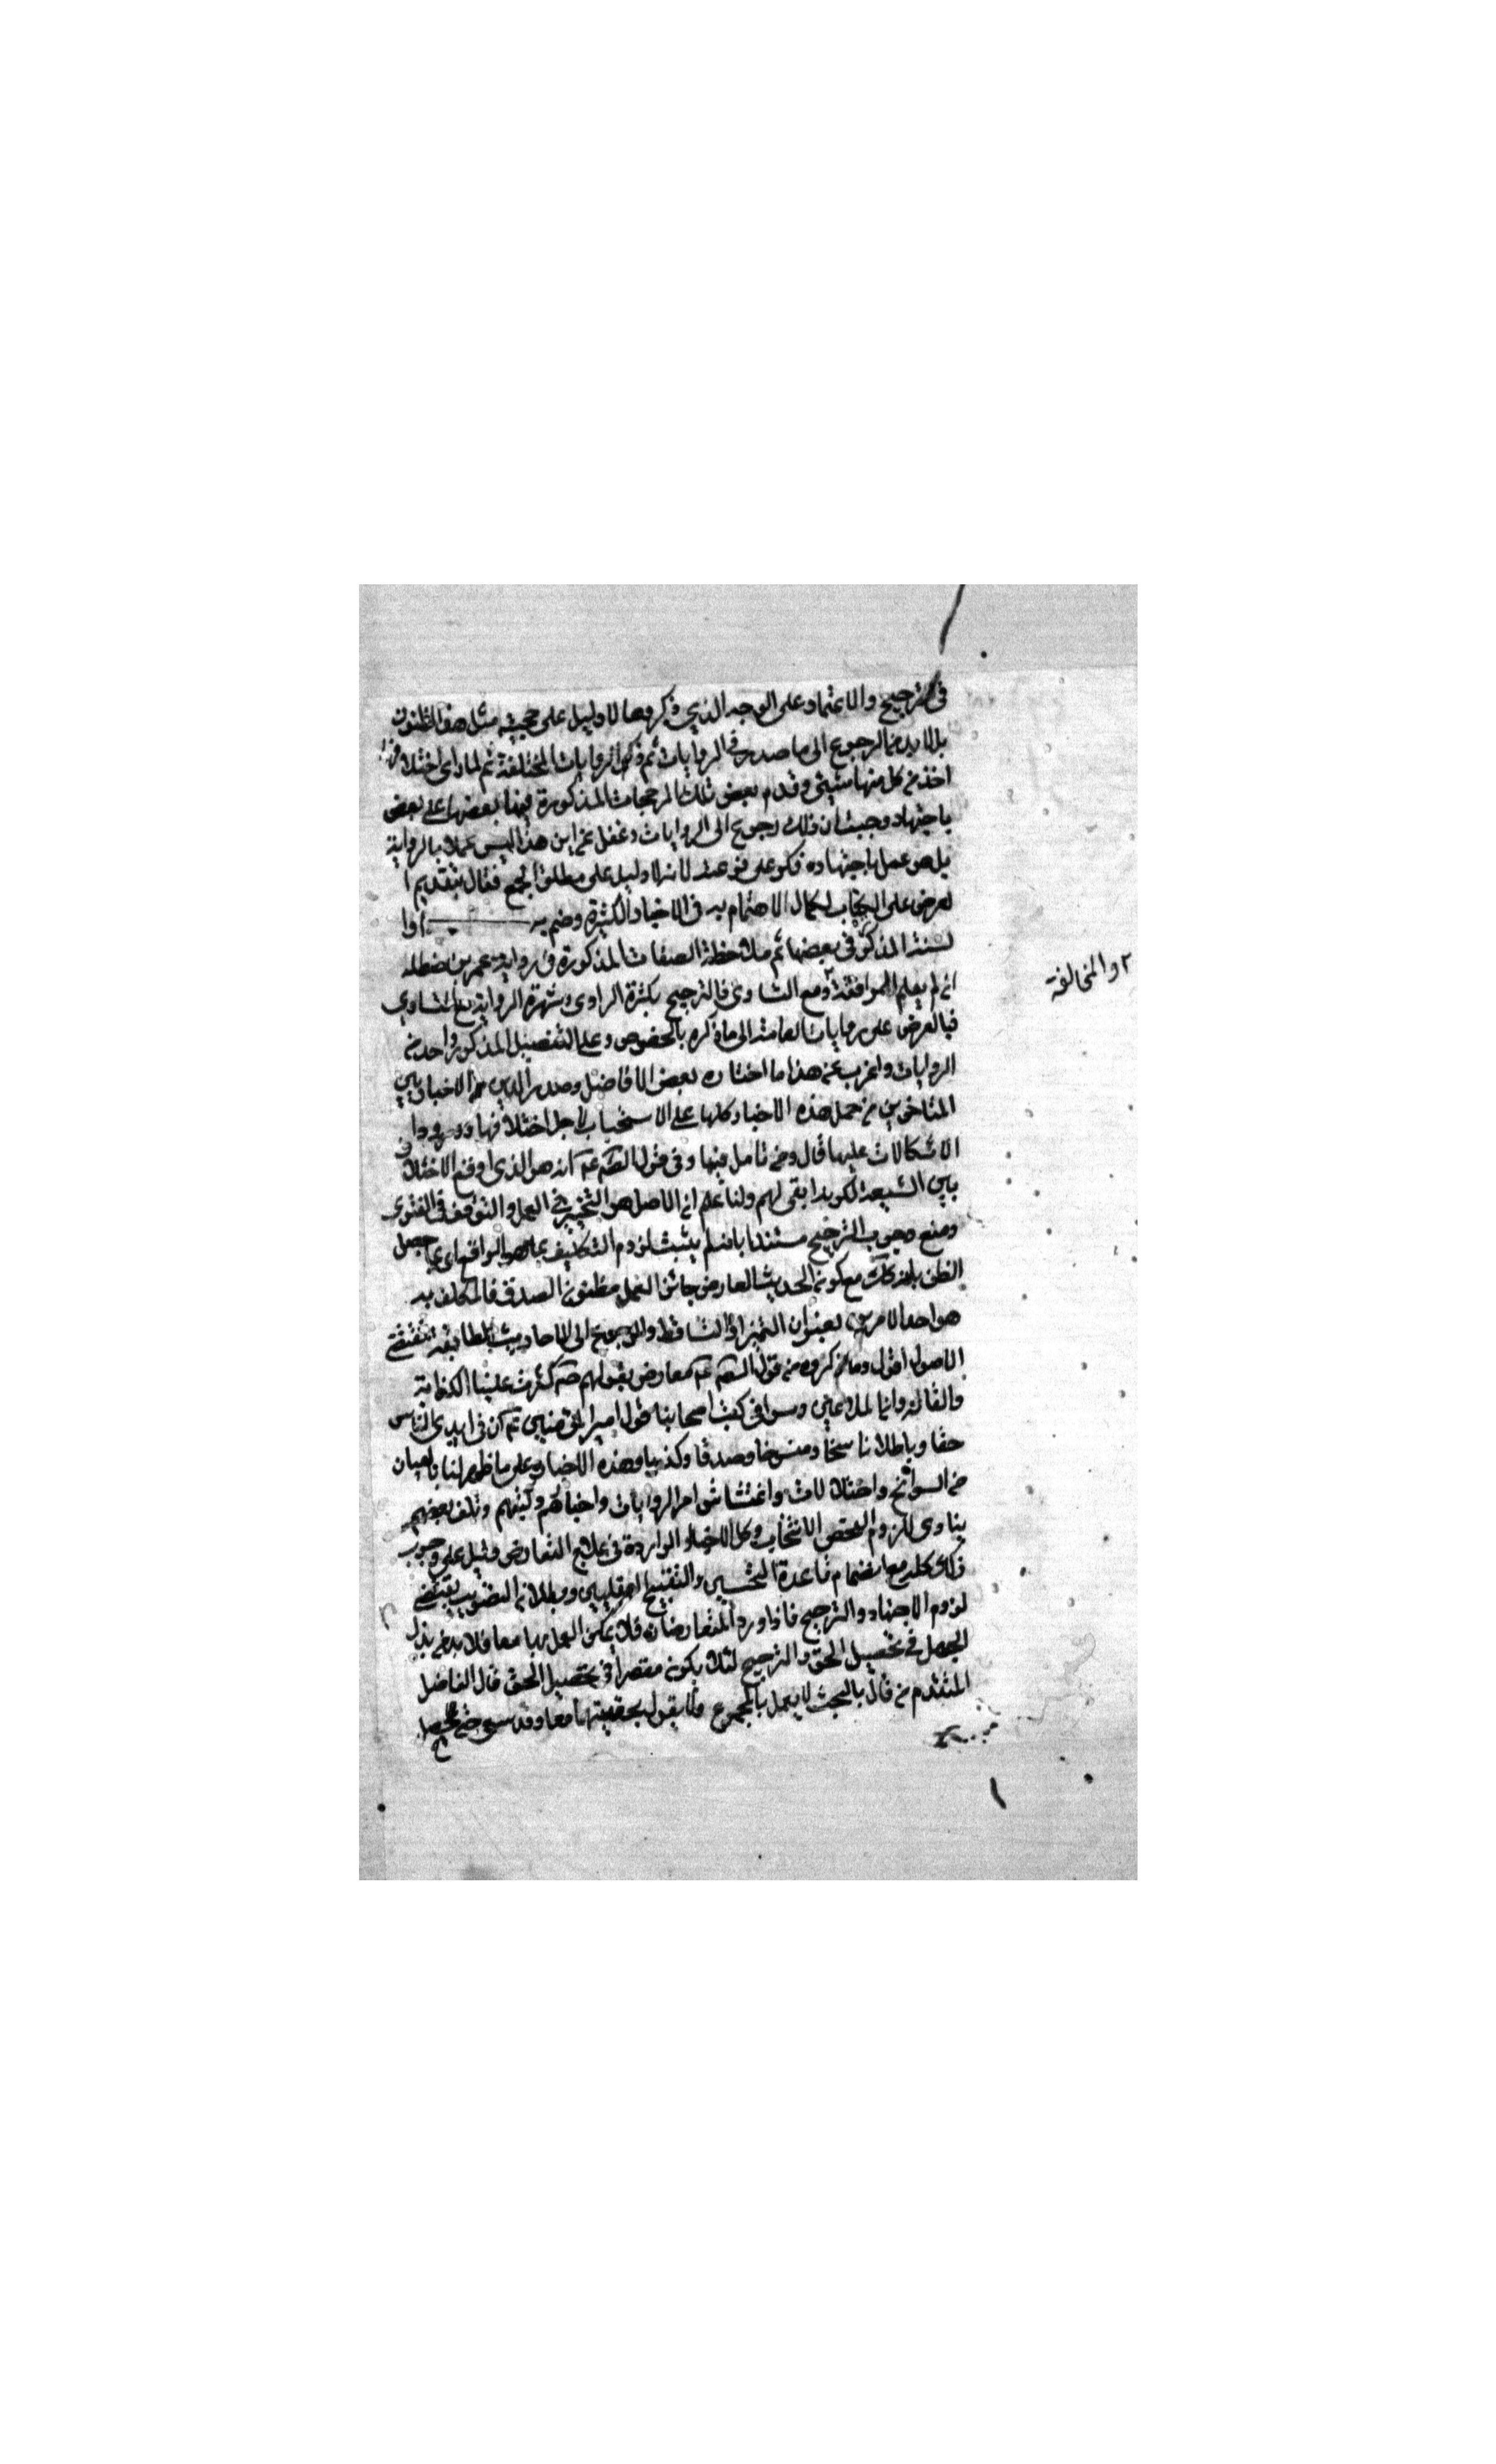 في الترجيح والاعتماد على الوجه الذي ذكروها لا دليل على حجية مثل هذه الظنون
بل لا بد من الرجوع الى ما صدر في الروايات ثم ذكر الروايات المختلفة ثم لما راى اختلافها
اخذ من كل منها شيئى وقدم بعض تلك المرجحات المذكورة فيها بعضها على بعض
باجتهاده وحسب ان ذلك رجوع الى الروايات وغفل عن ان هذا ليس عملا بالرواية
بل هو عمل باجتهاده فكر على فر عنه لانه لا دليل على مطلق الجمع فقال بتقديم ا
لعرض على الكتاب لكمال الاهتمام به في الاخبار الكثيرة وضم به اوا
لسنة المذكور في بعضها ثم ملاحظة الصفات المذكورة في رواية عمر بن حنظله
ان لم يعلم الموافقة ٢ ومع التساوى فالترجيح بكثرة الراوى وشهرة الرواية ومع التساوي
فبالعرض على روايات العامة الى ما ذكره بالخصوص وعلى التفصيل المذكور واحد من
الروايات واغرب من هذا ما اختاره بعض الافاضل وصدر الدين من الاخباريين
المتاخرين من حمل هذه الاخبار كلها على الاستحباب لاجل اختلافها وورود
الاشكالات عليها قال ومن تامل فيها وفى قولهم انه هو الذى اوقع الاختلاف
بين الشيعة لكونه ابقى لهم ولنا علم ان الاصل هو التخيير في العمل والتوقف في الفتوى
ومنع وجوب الترجيح مستندا بانه لم يثبت لزوم التكليف بما هو الواقع او بما حصل
الظن بانه كك مع كون الحديث المعارض جائز العمل مظنون الصدق فالمكلف به
هو احد الامرين بعنوان التخيير او التساقط والرجوع الى الاحاديث المطابقة لمقتضى
الاصول اقول وما ذكروه من قول معارض بقولهم كثرت علينا الكذابة
والقالة وانما لملاعين وسوا في كتب اصحابنا قول امير المؤمنين ع ان في ايدي الناس
حقا وباطلا ناسخا ومنسوخا وصدقا وكذبا وهذه الاخبار وعلى ما ظهر لنا بالعيان
من السوانح واختلالات واغتشاش امر الروايات واخبارهم وكتبهم وتلف بعضهم
ينادى للزوم الفحص الانتخاب وكل الاخبار الواردة في علاج التعارض دليل على وجوب
ذلك كله مع انضمام قاعدة التحسين والتقبيح العقليين وبطلان التصويب يقتضى
لزوم الاجتهاد والترجيح فاذا ورد المتعارضان فلا يمكن العمل بها معا فلا بد من بذل
الجهد في تحصيل الحق والترجيح لئلا يكون مقصرا في تحصيل الحق قال الفاضل
المتقدم من قال بالبحث لا يعمل بالمجموع ولا يقول بحقيتها معا وقد سبق
٢ والمخالفة